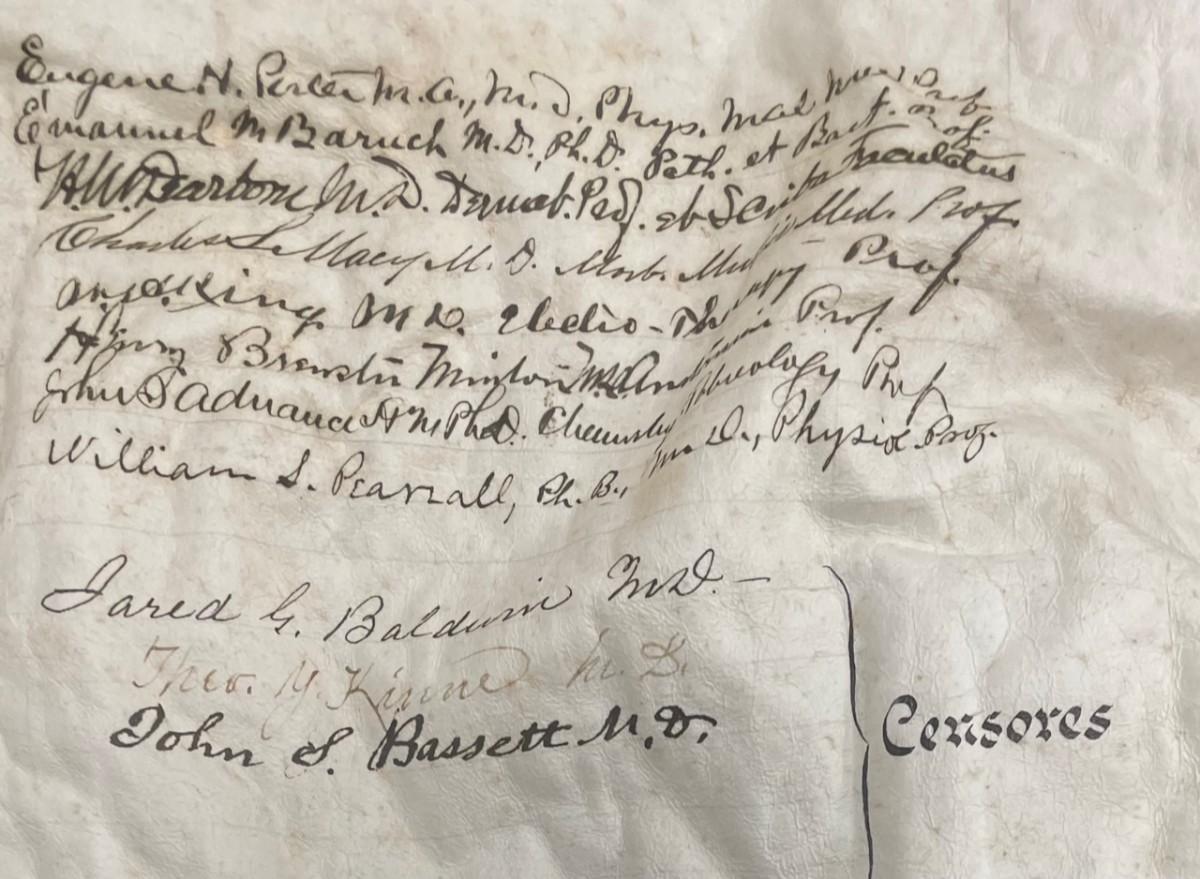 Eugene H. Porter M.A., M.D. Phys. Mat Med Prof.
Emanuel M Baruch M.D., Ph.D. Path. et Bact. Prof.
H.W. Dearborn M.D. Dermat. Prof. et Scriba Facultatis
Charles L. Macy M.D. Med. Prof.
King M.D. Electro-Therapy Prof.
Henry Brewster Minton Prof.
John S Adriance A M Ph.D. Chemistry Prof
William S. Pearsall, Ph.B., M.D., Physiol Prof.
Jared G. Baldwin M.D. -
Theo. Y. Kinne M.D.
John S. Bassett M.D.
Censores